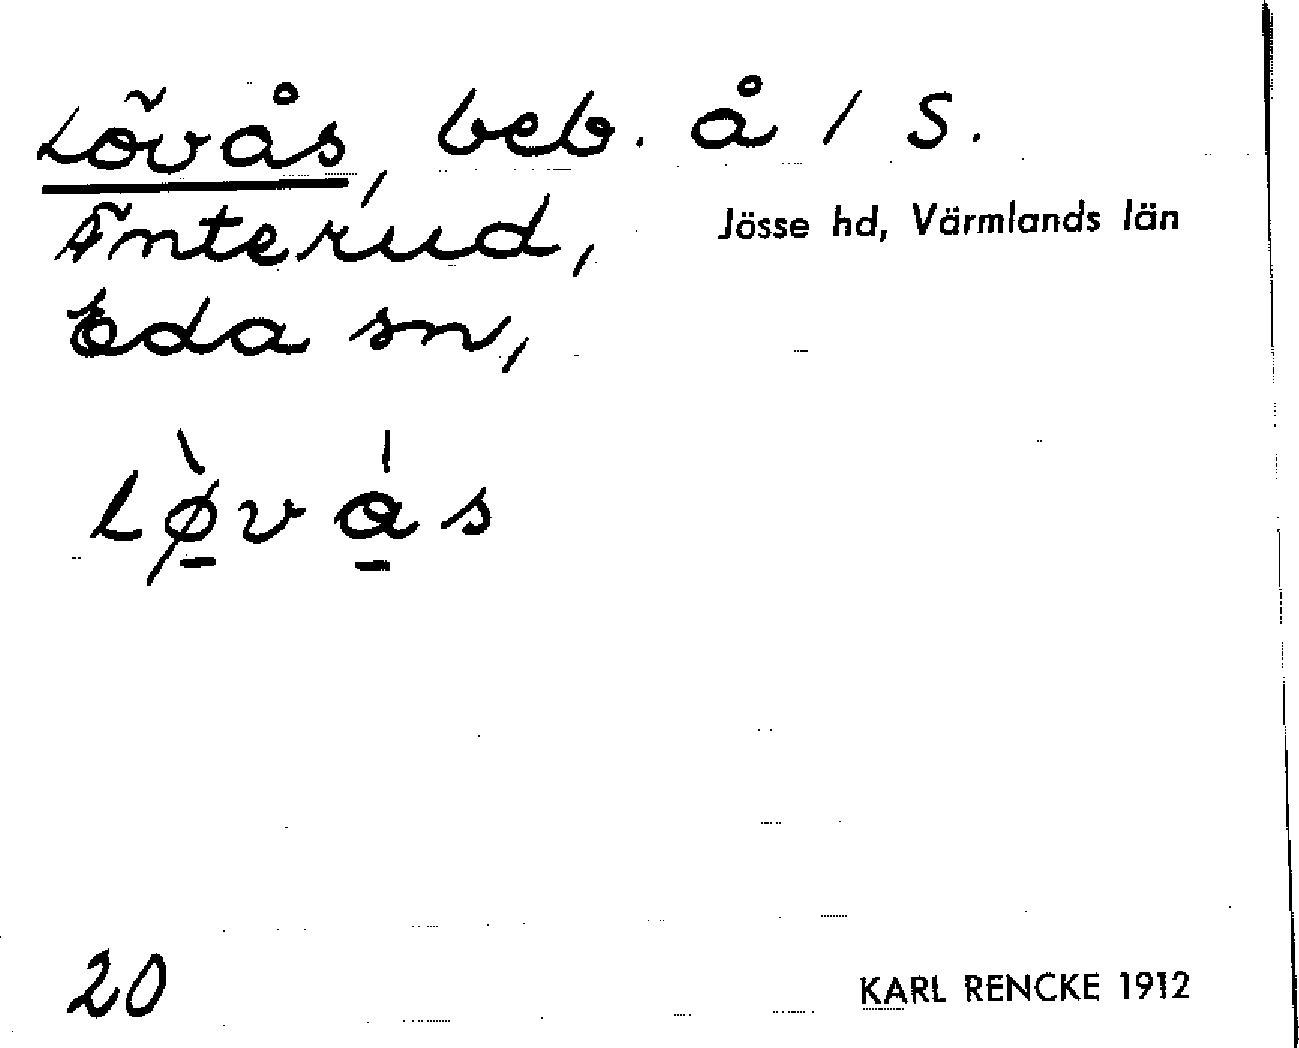 Lövås, beb. å 1 S.
Änterud,
Jösse hd, Värmlands län
Eda sn,
lø̱̀va̱̍s
20
KARL RENCKE 1912